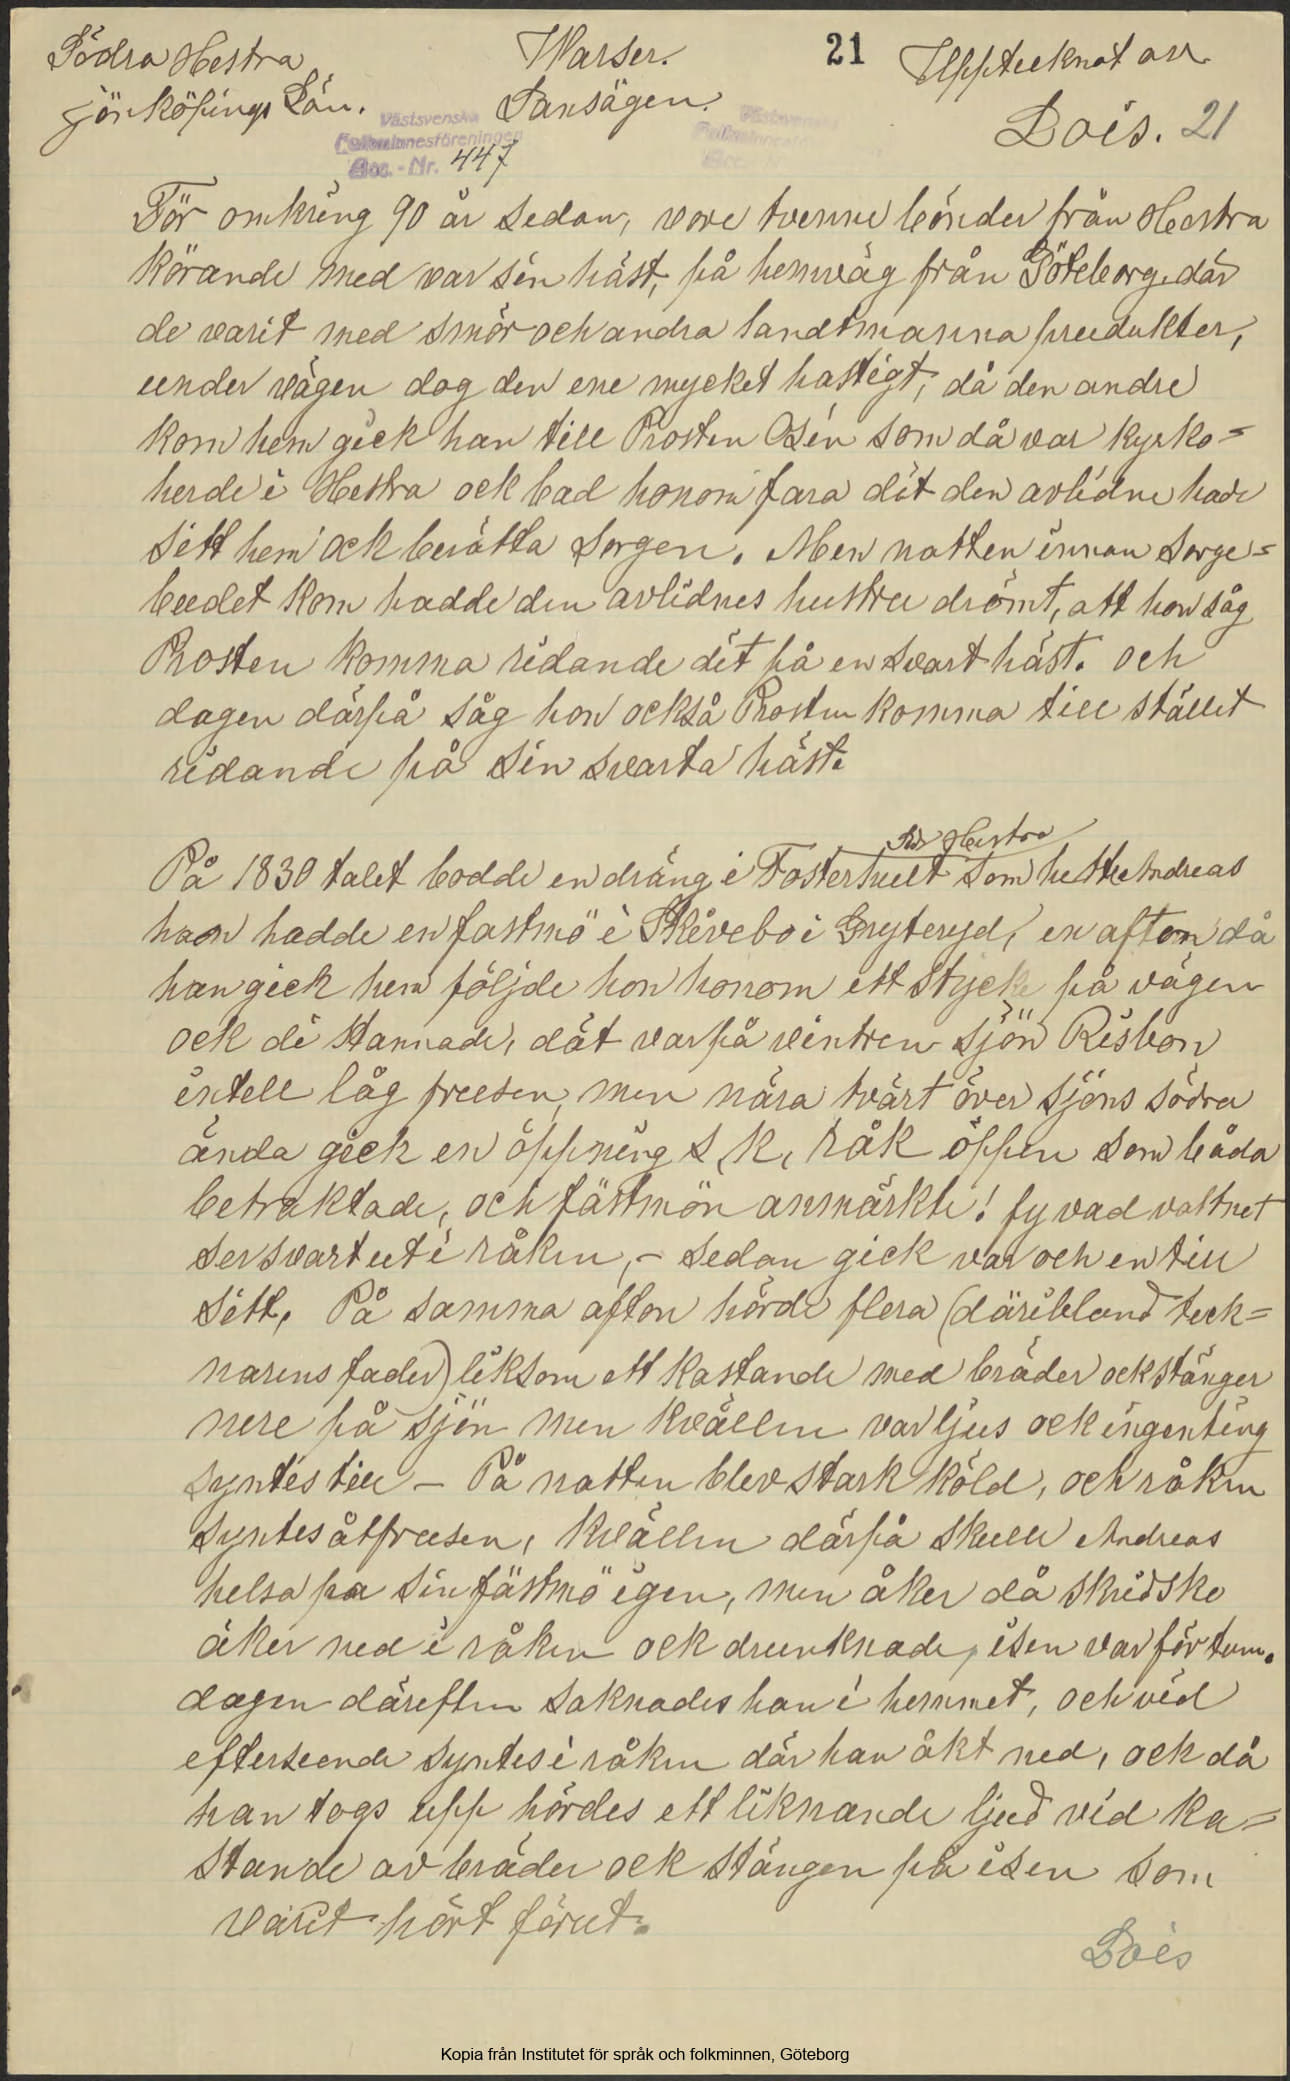 Södra Hestra
Jönköpings Län.
Warser.
Sansägen.
21
Upptecknat av
Lois. 21
Västsvenska
Folkminnesföreningen
Acc.-Nr. 447
För omkring 90 år sedan, vore tvenne bönder från Hestra
körande med var sin häst, på hemväg från Göteborg, där
de varit med smör och andra landtmanna produkter,
under vägen dog den ene mycket hastigt, då den andre
kom hem gick han till Prosten Osén som då var kyrko=
herde i Hestra ock bad honom fara dit den avlidne hade
sitt hem ock berätta sorgen. Men natten innan sorge=
budet kom hadde den avlidnes hustru drömt, att hon såg
Prosten komma ridande dit på en svart häst. och
dagen därpå såg hon också Prosten komma till stället
ridande på sin svarta häst.
Söd Hestra
På 1830 talet bodde en dräng i Fosterhult som hette Andreas
han hadde en fästmö i Skivebo i Gryteryd, en afton då
han gick hem följde hon honom ett stycke på vägen
ock di stannade, dät var på vintren sjön Risbon
intell låg frusen, men nära tvärt över sjöns södra
ända gick en öppning s, k, råk öppen som båda
betraktade, och fästmön anmärkte! fy vad vattnet
ser svart ut i råken, – sedan gick var och en till
sitt, På samma afton hörde flera (däribland teck=
narens fader) liksom ett kastande med bräder ock stänger
nere på sjön men kvällen var ljus ock ingenting
syntes till – På natten blev stark köld, och råken
syntes åtfrusen, kvällen därpå skulle Andreas
helsa pa sin fästmö igen, men åker då skridsko
åker ned i råken ock drunknade, isen var för tunn.
dagen däreften saknades han i hemmet, och vid
efterseende syntes i råken där han åkt ned, ock då
han togs upp hördes ett liknande ljud vid ka=
stande av bräder ock stängen på isen som
varit hört förut.
Lois
Kopia från Institutet för språk och folkminnen, Göteborg